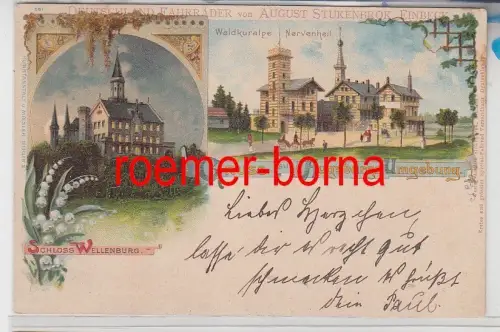 DEUTSCHLAND FAHRRÄDER von AUGUST STUKENBROK, EINBECK
Waldkuralpe Nervenheil
roemer-borna
Umgebung.
SCHLOSS WELLENBURG.
Liebes Herzchen,
lasse dir es recht gut
schmecken es grüßt
dein Paul.